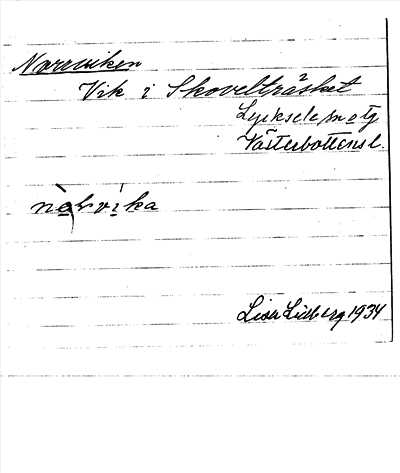 Norrviken
Vik i Skovelträsket
Lycksele sn o tg
Västerbottens l.
Lisa Lidberg 1934